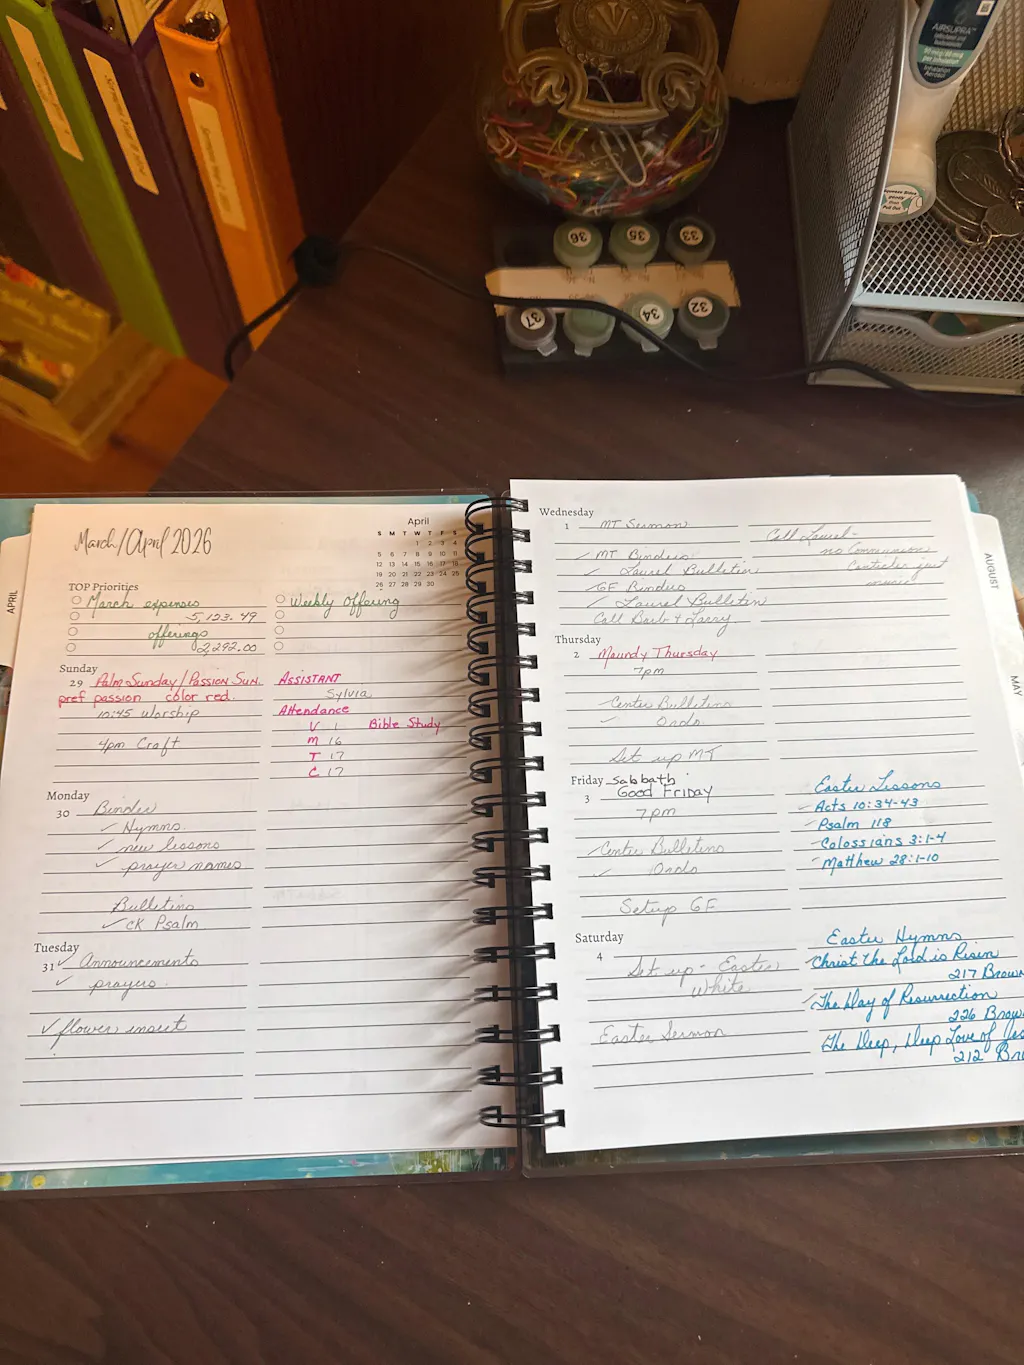 AIRSUPRA™
36
35
33
37
34
32
March/April 2026
April
S M T W T F S
1 2 3 4
5 6 7 8 9 10 11
12 13 14 15 16 17 18
19 20 21 22 23 24 25
26 27 28 29 30
APRIL
TOP Priorities
March expenses
5,123.49
offerings
2,292.00
Weekly Offering
Sunday
29 Palm Sunday/Passion Sun.
pref passion color red.
10:45 Worship
4pm Craft
Assistant
Sylvia
Attendance
V 1 Bible Study
M 16
T 17
C 17
Monday
30 Binder
✓ Hymns
✓ new lessons
✓ prayer names
Bulletins
✓ CK Psalm
Tuesday
31 ✓ Announcements
✓ prayers
✓ flower insert
Wednesday
1 MT Sermon
✓ MT Binders
✓ Laurel Bulletin
✓ GF Binders
✓ Laurel Bulletin
Call Barb & Larry
Call Laurel -
no Communion
just
music
Thursday
2 Maundy Thursday
7pm
✓ Center Bulletins
✓ Ordo
Set up MT
Friday Sabbath
3 Good Friday
7pm
✓ Center Bulletins
✓ Ordo
Setup GF
Easter Lessons
✓ Acts 10:34-43
✓ Psalm 118
✓ Colossians 3:1-4
✓ Matthew 28:1-10
Saturday
4
Set up - Easter
White
Easter Sermon
Easter Hymns
✓ Christ the Lord is Risen
217 Brown
✓ The Day of Resurrection
226 Brow
The Deep, Deep Love of Jes
212 Bro
AUGUST
MAY